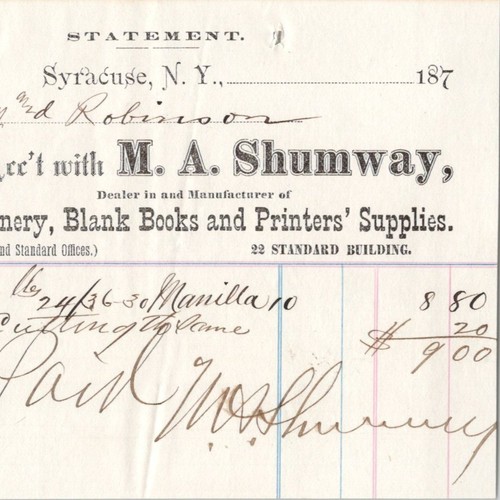 STATEMENT.
Syracuse, N. Y., 187
Robinson
cc't with M. A. Shumway,
Dealer in and Manufacturer of
nery, Blank Books and Printers' Supplies.
nd Standard Offices.) 22 STANDARD BUILDING.
24/36-30 Manilla 10 8 80
Cutting the same 20
$ 9 00
Paid M. A. Shumway